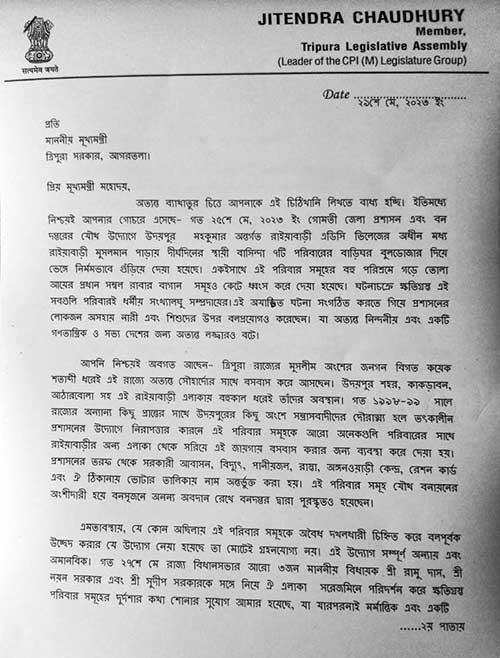 JITENDRA CHAUDHURY
Member,
Tripura Legislative Assembly
(Leader of the CPI (M) Legislature Group)
सत्यमेव जयते
Date ....................................
২৯শে মে, ২০২৩ ইং
প্রতি
মাননীয় মূখ্যমন্ত্রী
ত্রিপুরা সরকার, আগরতলা।
প্রিয় মূখ্যমন্ত্রী মহোদয়,
অত্যন্ত ব্যাথাতুর চিত্তে আপনাকে এই চিঠিখানি লিখতে বাধ্য হচ্ছি। ইতিমধ্যে
নিশ্চয়ই আপনার গোচরে এসেছে- গত ২৫শে মে, ২০২৩ ইং গোমতী জেলা প্রশাসন এবং বন
দপ্তরের যৌথ উদ্যোগে উদয়পুর মহকুমার অন্তর্গত রাইয়াবাড়ী এডিসি ভিলেজের অধীন মধ্য
রাইয়াবাড়ী মুসলমান পাড়ায় দীর্ঘদিনের স্থায়ী বাসিন্দা ৭টি পরিবারের বাড়িঘর বুলডোজার দিয়ে
ভেঙ্গে নির্মমভাবে গুঁড়িয়ে দেয়া হয়েছে। একইসাথে এই পরিবার সমূহের বহু পরিশ্রমে গড়ে তোলা
আয়ের প্রধান সম্বল রাবার বাগান সমূহও কেটে ধ্বংস করে দেয়া হয়েছে। ঘটনাচক্রে ক্ষতিগ্রস্ত এই
সবগুলি পরিবারই ধর্মীয় সংখ্যালঘু সম্প্রদায়ের। এই অযাচিত ঘটনা সংগঠিত করতে গিয়ে প্রশাসনের
লোকজন অসহায় নারী এবং শিশুদের উপর বলপ্রয়োগও করেছেন। যা অত্যন্ত নিন্দনীয় এবং একটি
গণতান্ত্রিক ও সভ্য দেশের জন্য অত্যন্ত লজ্জারও বটে।
আপনি নিশ্চয়ই অবগত আছেন- ত্রিপুরা রাজ্যের মুসলীম অংশের জনগন বিগত কয়েক
শতাব্দী ধরেই এই রাজ্যে অত্যন্ত সৌহার্দ্যের সাথে বসবাস করে আসছেন। উদয়পুর শহর, কাকড়াবন,
আঠারবোলা সহ এই রাইয়াবাড়ী এলাকায় বহুকাল ধরেই তাঁদের অবস্থান। গত ১৯৯৮-৯৯ সালে
রাজ্যের অন্যান্য কিছু প্রান্তের সাথে উদয়পুরের কিছু অংশে সন্ত্রাসবাদীদের দৌরাত্ম্য হলে তৎকালীন
প্রশাসনের উদ্যোগে নিরাপত্তার কারনে এই পরিবার সমূহকে আরো অনেকগুলি পরিবারের সাথে
রাইয়াবাড়ীর অন্য এলাকা থেকে সরিয়ে এই জায়গায় বসবাস করার জন্য ব্যবস্থা করে দেয়া হয়।
প্রশাসনের তরফ থেকে সরকারী আবাসন, বিদ্যুৎ, পানীয়জল, রাস্তা, অঙ্গনওয়াড়ী কেন্দ্র, রেশন কার্ড
এবং ঐ ঠিকানায় ভোটার তালিকায় নাম অন্তর্ভুক্ত করা হয়। এই পরিবার সমূহ যৌথ বনায়নের
অংশীদারী হয়ে বনসৃজনে অনন্য অবদান রেখে বনদপ্তর দ্বারা পুরস্কৃতও হয়েছেন।
এমতাবস্থায়, যে কোন অছিলায় এই পরিবার সমূহকে অবৈধ দখলদারী চিহ্নিত করে বলপূর্বক
উচ্ছেদ করার যে উদ্যোগ নেয়া হয়েছে তা মোটেই গ্রহনযোগ্য নয়। এই উদ্যোগ সম্পূর্ণ অন্যায় এবং
অমানবিক। গত ২৭শে মে রাজ্য বিধানসভার আরো ৩জন মাননীয় বিধায়ক শ্রী রামু দাস, শ্রী
নয়ন সরকার এবং শ্রী সুদীপ সরকারকে সঙ্গে নিয়ে ঐ এলাকা সরেজমিনে পরিদর্শন করে ক্ষতিগ্রস্থ
পরিবার সমূহের দুর্দশার কথা শোনার সুযোগ আমার হয়েছে, যা যারপরনাই মর্মান্তিক এবং একটি
......২য় পাতায়